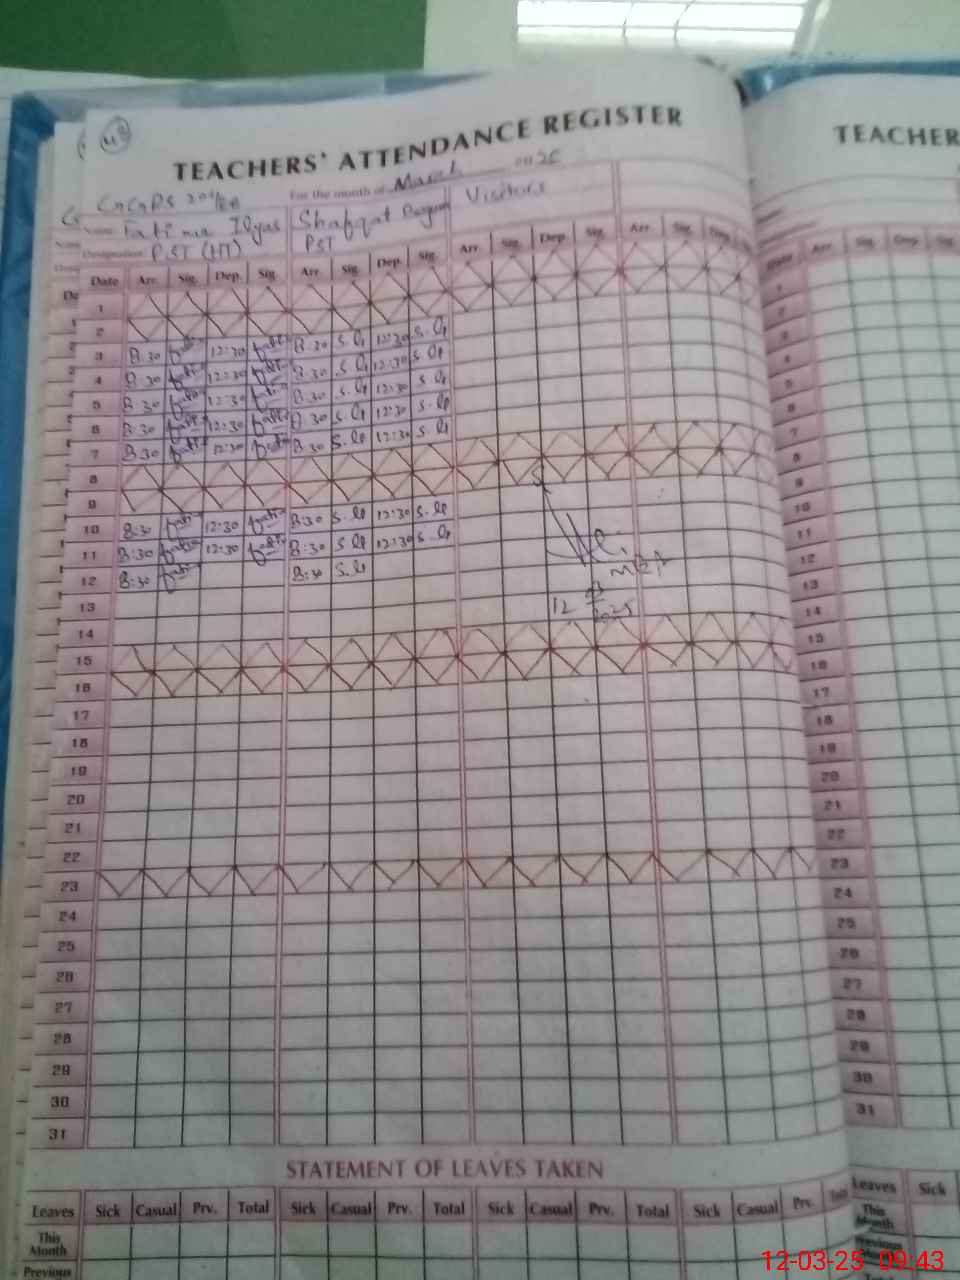 TEACHERS' ATTENDANCE REGISTER
TEACHER
For the month of March 2025
Name Fatima Ilyas Shafqat Begum Visitors
Designation PST (HT) PST
Date Arr. Sig. Dep. Sig. Arr. Sig. Dep. Sig. Arr. Sig. Dep. Sig. Arr. Sig. Date Arr. Sig. Dep. Sig.
1
2
3 8:30 12:30 8:30 12:30
4 8:30 12:30 8:30 12:30
5 8:30 12:30 8:30 12:30
6 8:30 12:30 8:30 12:30
7 8:30 12:30 8:30 12:30
8
9
10 8:30 12:30 8:30 12:30
11 8:30 12:30 8:30 12:30
12 8:30 8:30
12 03 2025
13
14
15
16
17
18
19
20
21
22
23
24
25
26
27
28
29
30
31
1
2
3
4
5
6
7
8
9
10
11
12
13
14
15
16
17
18
19
20
21
22
23
24
25
26
27
28
29
30
31
STATEMENT OF LEAVES TAKEN
Leaves Sick Casual Prv. Total Sick Casual Prv. Total Sick Casual Prv. Total Sick Casual Prv. Total
This Month
Previous
Leaves Sick
This Month
Previous
12-03-25 09:43